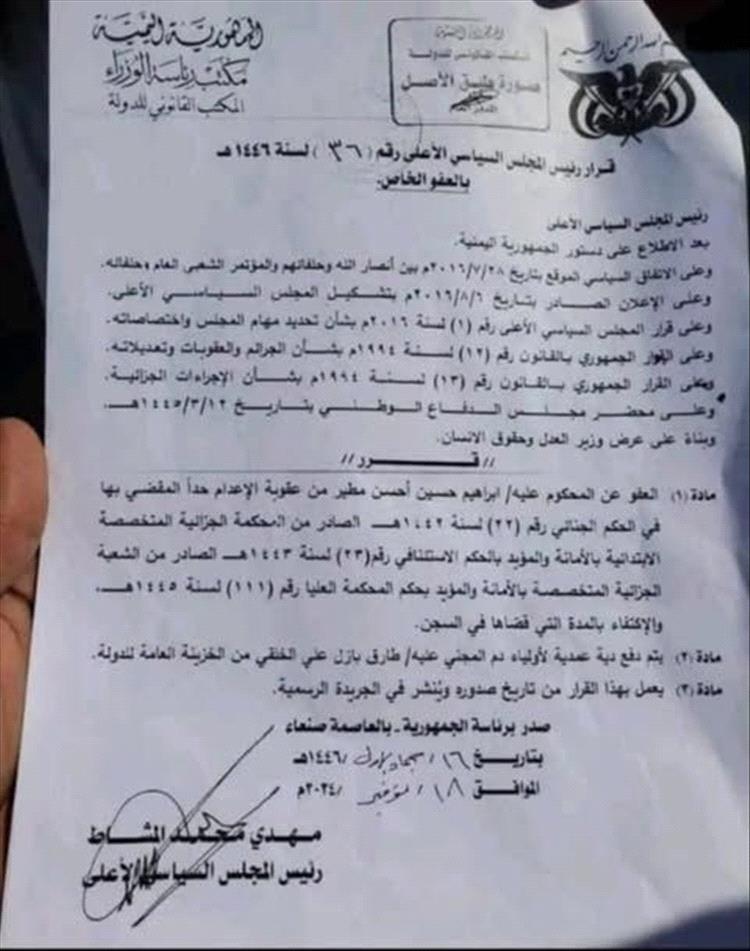 بسم الله الرحمن الرحيم
الجمهورية اليمنية
مكتب رئاسة الوزراء
المكتب القانوني للدولة
الجمهورية اليمنية
صورة طبق الأصل
قرار رئيس المجلس السياسي الأعلى رقم (٣٦) لسنة ١٤٤٦هـ
بالعفو الخاص.
رئيس المجلس السياسي الأعلى
بعد الاطلاع على دستور الجمهورية اليمنية.
وعلى الاتفاق السياسي الموقع بتاريخ ٢٠١٦/٧/٢٨م بين أنصار الله وحلفائهم والمؤتمر الشعبي العام وحلفائه.
وعلى الإعلان الصادر بتاريخ ٢٠١٦/٨/٦م بتشكيل المجلس السياسي الأعلى.
وعلى قرار المجلس السياسي الأعلى رقم (١) لسنة ٢٠١٦م بشأن تحديد مهام المجلس واختصاصاته.
وعلى القرار الجمهوري بالقانون رقم (١٢) لسنة ١٩٩٤م بشأن الجرائم والعقوبات وتعديلاته.
وعلى القرار الجمهوري بالقانون رقم (١٣) لسنة ١٩٩٤م بشأن الإجراءات الجزائية.
وعلى محضر مجلس الدفاع الوطني بتاريخ ١٤٤٥/٣/١٢هـ.
وبناءً على عرض وزير العدل وحقوق الانسان.
// قـــرر //
مادة (١) العفو عن المحكوم عليه/ ابراهيم حسين أحسن مطير من عقوبة الإعدام حداً المقضي بها
في الحكم الجنائي رقم (٢٢) لسنة ١٤٤٢هـ الصادر من المحكمة الجزائية المتخصصة
الابتدائية بالأمانة والمؤيد بالحكم الاستئنافي رقم(٢٣) لسنة ١٤٤٣هـ الصادر من الشعبة
الجزائية المتخصصة بالأمانة والمؤيد بحكم المحكمة العليا رقم (١١١) لسنة ١٤٤٥هـ،
والإكتفاء بالمدة التي قضاها في السجن.
مادة (٢) يتم دفع دية عمدية لأولياء دم المجني عليه/ طارق بازل علي الخلقي من الخزينة العامة للدولة.
مادة (٣) يعمل بهذا القرار من تاريخ صدوره ويُنشر في الجريدة الرسمية.
صدر برئاسة الجمهورية ـ بالعاصمة صنعاء
بتاريخ ١٦/ جماد الاول /١٤٤٦هـ
الموافق ١٨/ نوفمبر /٢٠٢٤م
مهدي محمد المشاط
رئيس المجلس السياسي الأعلى